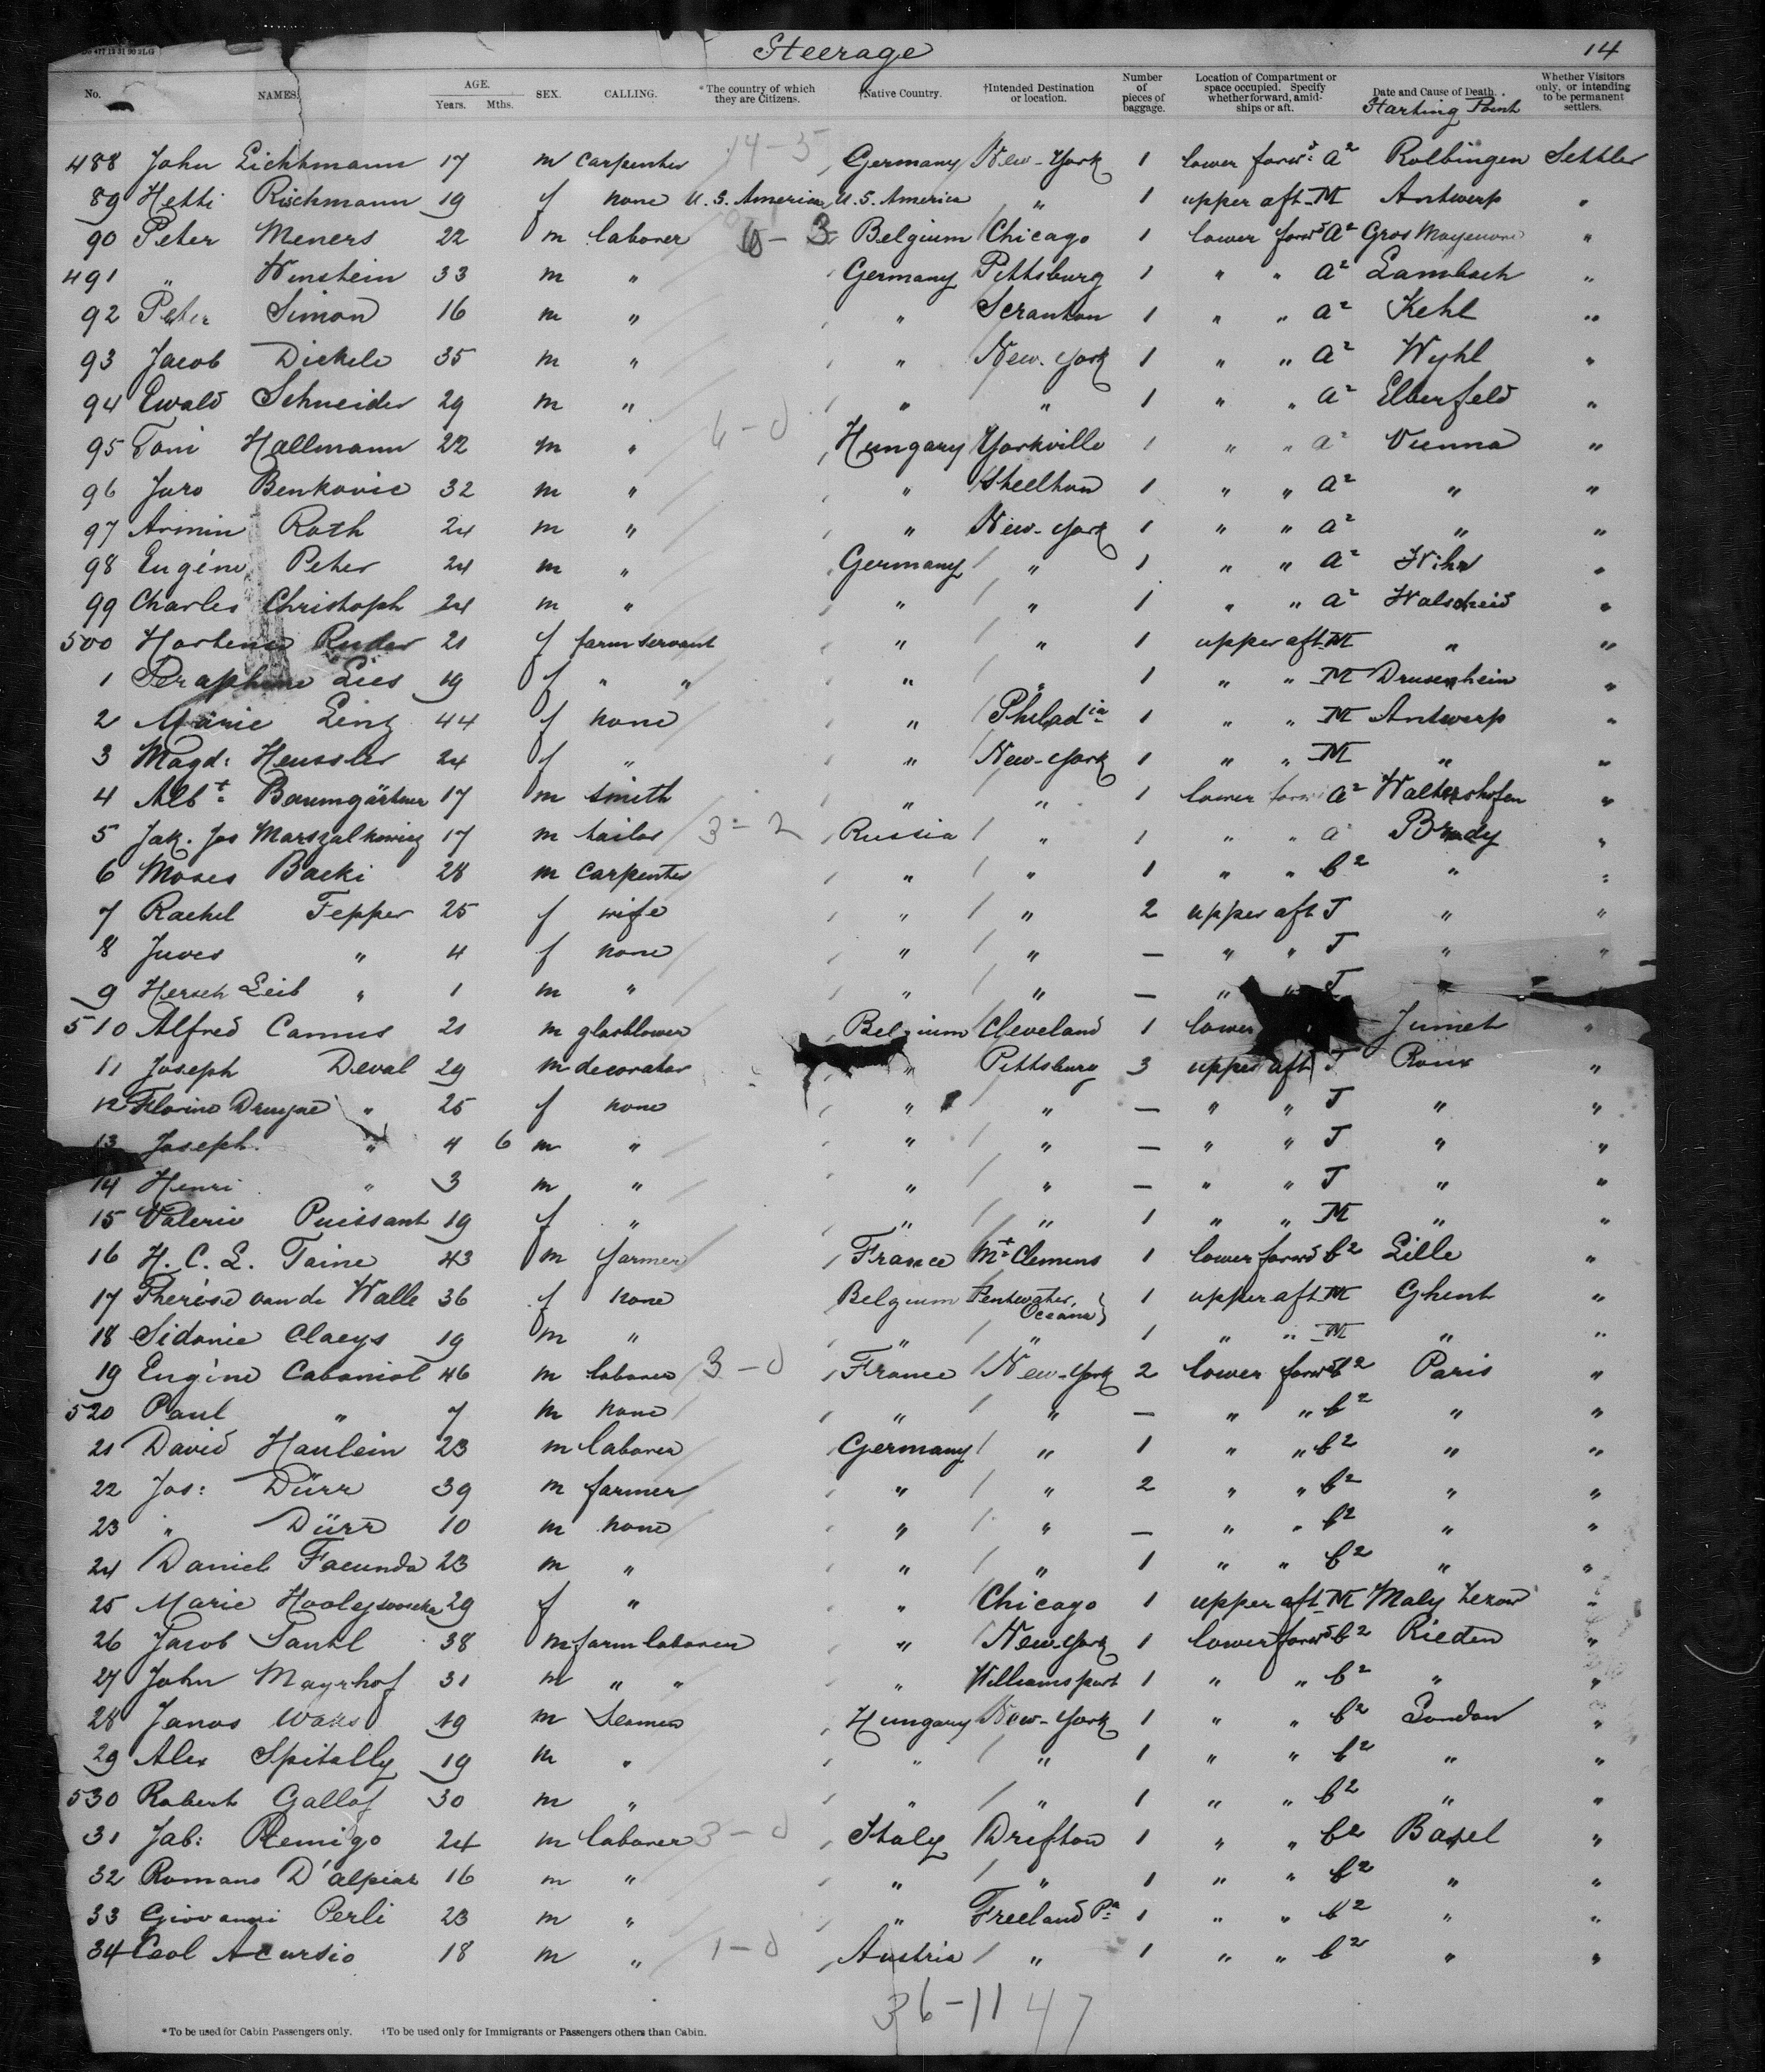 Steerage 14
No. NAMES. AGE. Years. Mths. SEX. CALLING. *The country of which they are Citizens. †Native Country. †Intended Destination or location. Number of pieces of baggage. Location of Compartment or space occupied. Specify whether forward, amidships or aft. Date and Cause of Death. Starting Point Whether Visitors only, or intending to be permanent settlers.
488 John Eichhmann 17 m carpenter 14-5 Germany New-York 1 lower forwd: a2 Rolbingen Settler
89 Hetti Rischmann 19 f none U.S. America U.S. America " 1 upper aft M Antwerp "
90 Peter Meners 22 m laborer 3 Belgium Chicago 1 lower forwd a2 Gros "
491 " Winstein 33 m " Germany Pittsburg 1 " " a2 Lambach "
92 Peter Simon 16 m " " Scranton 1 " " a2 Kehl "
93 Jacob Dickele 35 m " " New-York 1 " " a2 Wyhl "
94 Ewald Schneider 29 m " " " 1 " " a2 Elberfeld "
95 Toni Hallmann 22 m " 6-0 Hungary Yorkville 1 " " a2 Vienna "
96 Juro Benkovic 32 m " " Steelton 1 " " a2 " "
97 Armin Roth 24 m " " New-York 1 " " a2 " "
98 Eugéne Peter 24 m " Germany " 1 " " a2 Wihr "
99 Charles Christoph 24 m " " " 1 " " a2 Walscheid "
500 Hortense Ruder 21 f farm servant " " 1 upper aft M " "
1 Seraphine Lies 19 f " " " " 1 " " M Drusenheim "
2 Marie Linz 44 f none " Philadia 1 " " M Antwerp "
3 Magd: Heussler 24 f " " New-York 1 " " M " "
4 Albt: Baumgärtner 17 m smith " " 1 lower forwd a2 Waltershofen "
5 Jak. Jos Marszalkowicz 17 m tailor 3-2 Russia " 1 " " a Brody "
6 Moses Backi 28 m carpenter " " 1 " " b2 " "
7 Rachel Fepper 25 f wife " " 2 upper aft J " "
8 Juves " 4 f none " " — " " J " "
9 Hersch Leib " 1 m " " " — " " J
510 Alfred Camus 21 m glasblower Belgium Cleveland 1 lower Jumet "
11 Joseph Deval 29 m decorator " Pittsburg 3 upper aft J Roux "
12 Florine Druyne " 25 f none " " — " " J " "
13 Joseph " 4 6 m " " " — " " J " "
14 Henri " 3 m " " " — " " J " "
15 Valerie Puissant 19 f " " " 1 " " M " "
16 H. C. L. Taine 43 m farmer France Mt: Clemens 1 lower forwd b2 Lille "
17 Therése van de Walle 36 f none Belgium Pentwater, Oceana } 1 upper aft M Ghent "
18 Sidonie Claeys 19 m " " " 1 " " M " "
19 Eugéne Cabaniol 46 m laborer 3-0 France New-York 2 lower forwd b2 Paris "
520 Paul " 7 m none " " — " " b2 " "
21 David Haulein 23 m laborer Germany " 1 " " b2 " "
22 Jos: Dürr 39 m farmer " " 2 " " b2 " "
23 " Dürr 10 m none " " — " " b2 " "
24 Daniel Facunda 23 m " " " 1 " " b2 " "
25 Marie 29 f " " Chicago 1 upper aft M Maly "
26 Jacob Tankl 38 m farm laborer " New-York 1 lower forwd b2 Rieden "
27 John Mayrhof 31 m " " " Williamsport 1 " " b2 " "
28 Janos Waks 19 m Seamen Hungary New-York 1 " " b2 London "
29 Alex Spitally 19 m " " " 1 " " b2 " "
530 Robert Gallof 30 m " " " 1 " " b2 " "
31 Jab: Remigo 24 m laborer 3-0 Italy Drifton 1 " " b2 Basel "
32 Romano D'alpiaz 16 m " " " 1 " " b2 " "
33 Giovanni Perli 23 m " " Freeland Pa 1 " " b2 " "
34 Ceol Acursio 18 m " 1-0 Austria " 1 " " b2 " "
36-11 47
*To be used for Cabin Passengers only. †To be used only for Immigrants or Passengers others than Cabin.